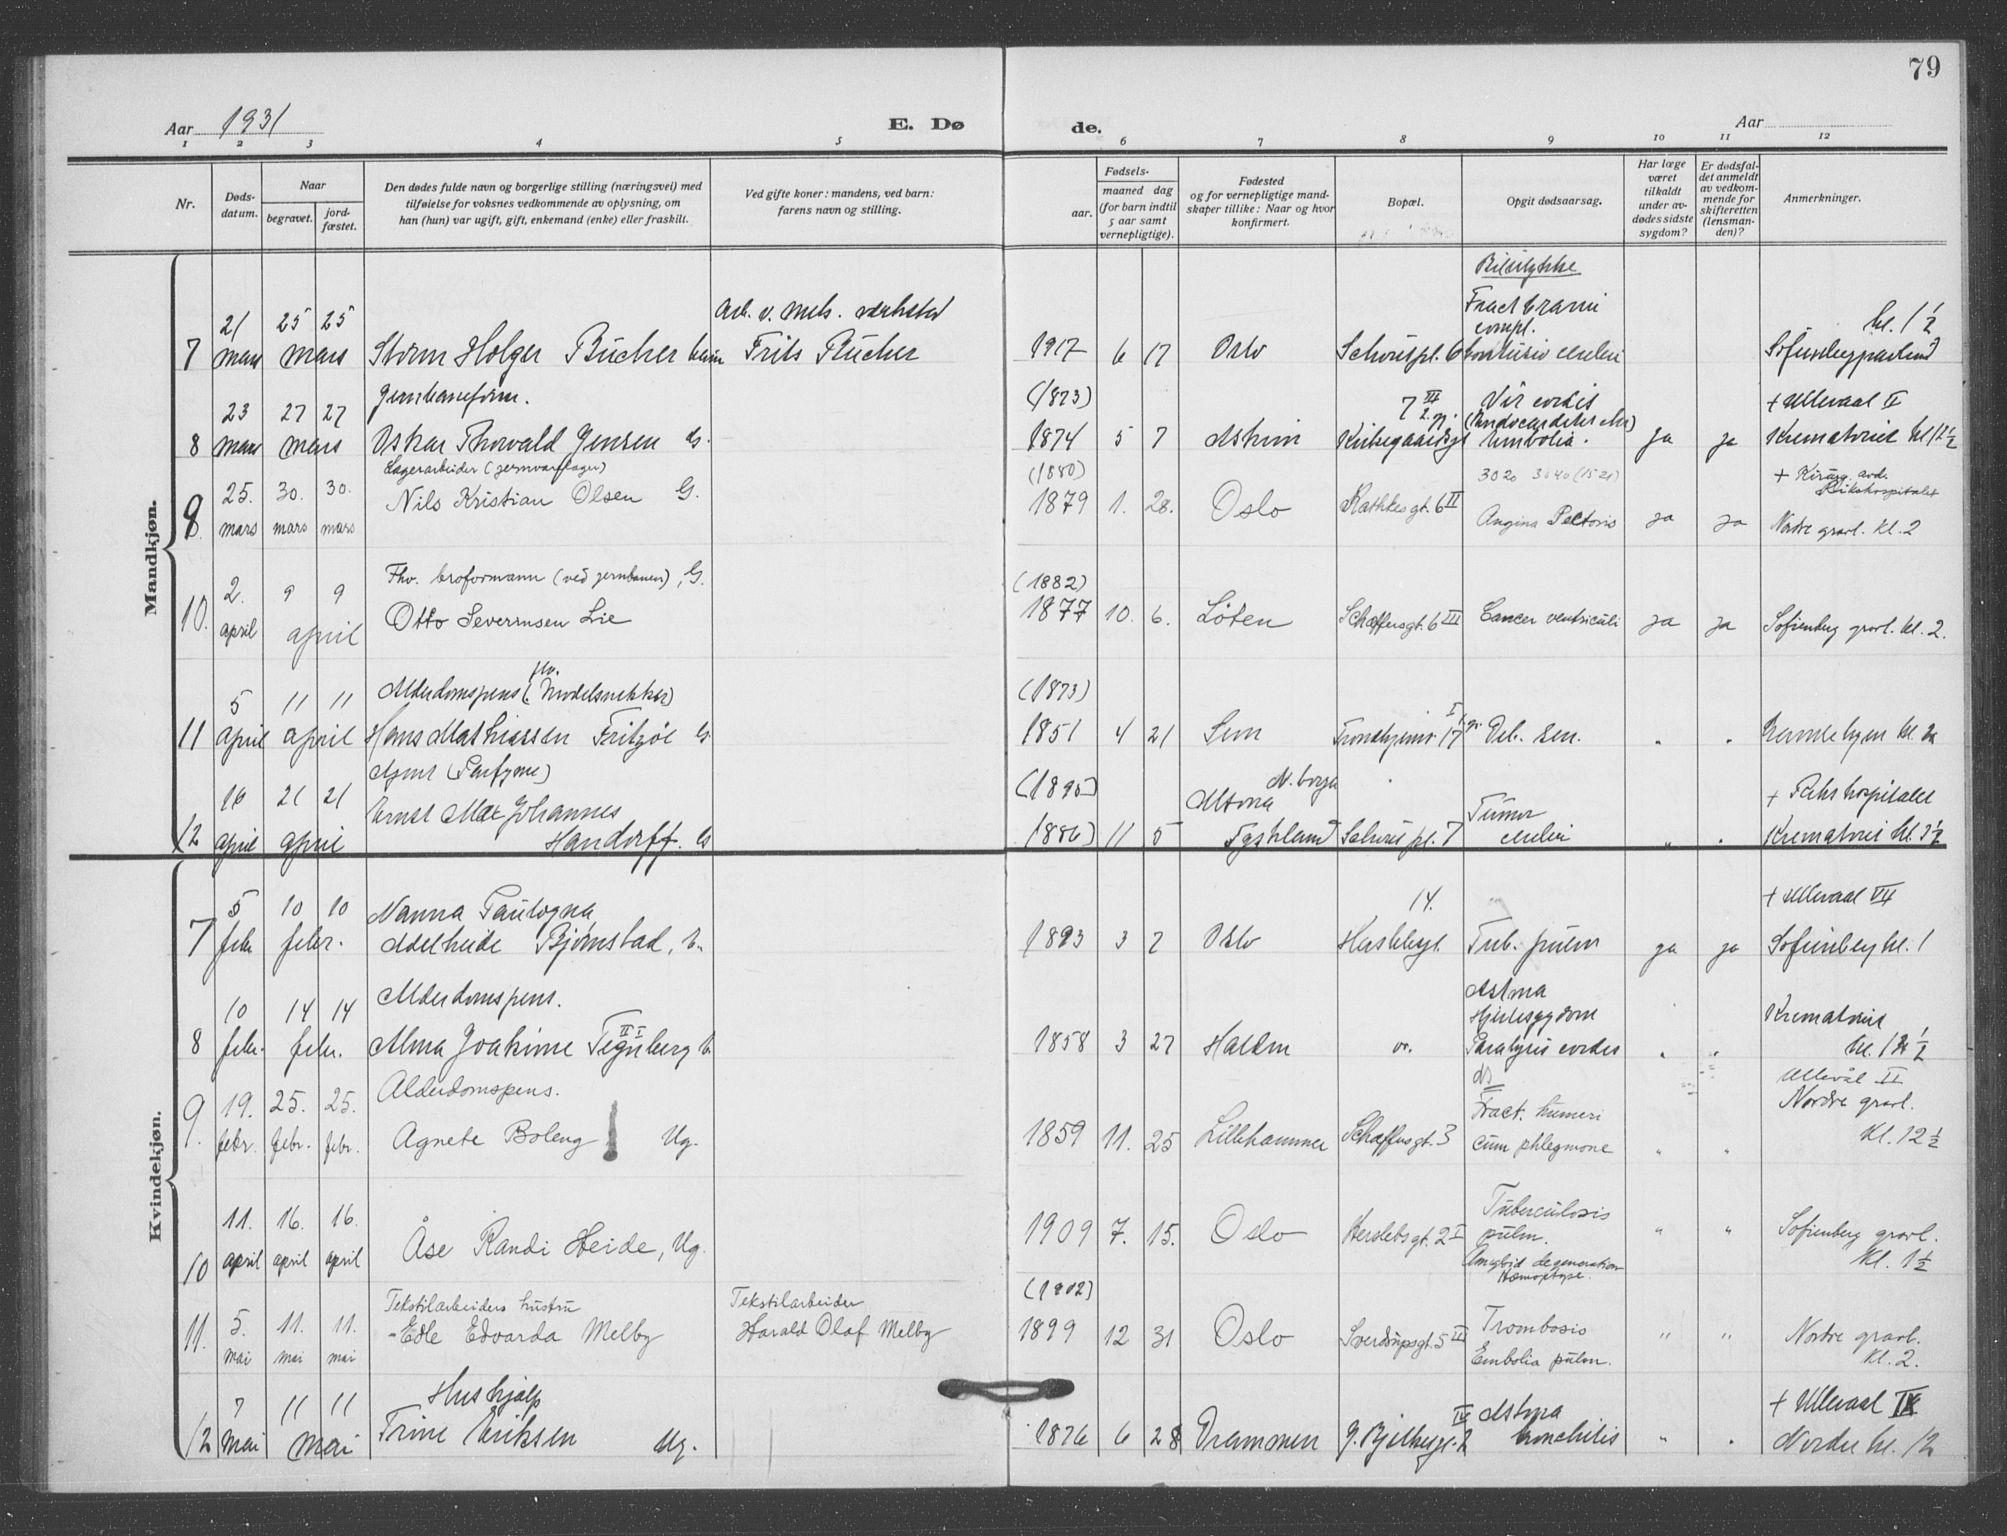 79
Aar 1931
E. Dø
de.
Aar
1 2 3 4 5 6 7 8 9 10 11 12
Nr.
Døds-
datum.
Naar
begravet.
jord-
fæstet.
Den dødes fulde navn og borgerlige stilling (næringsvei) med
tilføielse for voksnes vedkommende av oplysning, om
han (hun) var ugift, gift, enkemand (enke) eller fraskilt.
Ved gifte koner: mandens, ved barn:
farens navn og stilling.
Fødsels-
aar.
maaned dag
(for barn indtil
5 aar samt
vernepligtige).
Fødested
og for vernepligtige mand-
skaper tillike: Naar og hvor
konfirmert.
Bopæl.
Opgit dødsaarsag.
Har læge
været
tilkaldt
under av-
dødes sidste
sygdom?
Er dødsfal-
det anmeldt
av vedkom-
mende for
skifteretten
(lensman-
den)?
Anmerkninger.
Mandkjøn.
Bilulykke
21 25 25 Arb. v. mek. verksted Fract cranii kl. 1 1/2
compl.
7 mars mars Storm Holger Bucher Frits Bucher 1917 6 17 Oslo Schouspl. 6 contusio cerebri
23 27 27 (1873) 7 III Vit. cordis + Ullevaal II
8 mars mars Oskar Thorvald Jensen G. 1874 5 7 Askim Embolia. ja ja Krematoriet
Lagerarbeider (jernvarelager) (1880) 3020 3040 (1521) + Kirurg. avd.
Rikshospitalet
25. 30. 30. Nils Kristian Olsen G. 1879 1. 28. Oslo Rathkesgt. 6 II
mars mars mars Angina Pectoris ja ja Nordre gravl. kl. 2
Fhv. broformann (ved jernbanen), G. (1882)
10. 2. april 9 9 april Otto Severinsen Lie 1877 10. 6. Löten Schæffersgt. 6 III Cancer ventriculi ja ja Sofienberg gravl. kl. 2.
fhv.
Alderdomspens. (Modelsnekker) (1873)
5 11 11
11 april april Hans Mathiassen Fritzøe G 1851 4 21 Sem 17 Deb. sen. " "
Agent (Parfyme) (1890)
16 21 21 Ernst Max Johannes Altona Tumor
12 april april Handorff. G (1886) 11 5 Tyskland Schous pl. 7 cerebri " " Krematoriet
Kvindekjøn.
5 10 10 Nanna 14. + Ullevaal VII
7 febr febr. Adelheide Bjørnstad, 1893 3 2 Oslo Tub. pulm ja ja Sofienberg kl. 1
10 14 14 Alderdomspens. Astma Krematoriet
Hjertesygdom
8 febr. febr. Alma Joakime 1858 3 27 Halden Paralysis cordis " "
Alderdomspens. Ullevål II
Nordre gravl.
9. 19. febr. 25. febr. 25. febr. Agnete Boleng Ug. 1859 11. 25 Lillehammer Schæffersgt. 3 Fract. humeri
cum phlegmone " " Kl. 12 1/2
11. 16. 16. Tuberculosis
10 april april april Åse Randi Heide, Ug. 1909 7. 15. Oslo Herslebsgt. 2 I pulm. " " Sofienberg gravl.
Amyloid degeneration Kl. 1 1/2
Hæmoptyse.
Tekstilarbeiders hustru Tekstilarbeider (1902)
11. 5. mai 11. mai 11. mai Edle Edvarda Melby Harald Olaf Melby 1899 12 31 Oslo Sverdrupsgt. 5 III Trombosis " " Nordre gravl.
Embolia pulm. Kl. 2.
7 11 11 Hushjælp IV Astma + Ullevaal IX
12 mai mai Trine Eriksen Ug. 1876 6 28 Drammen bronchitis " " Nordre kl. 12